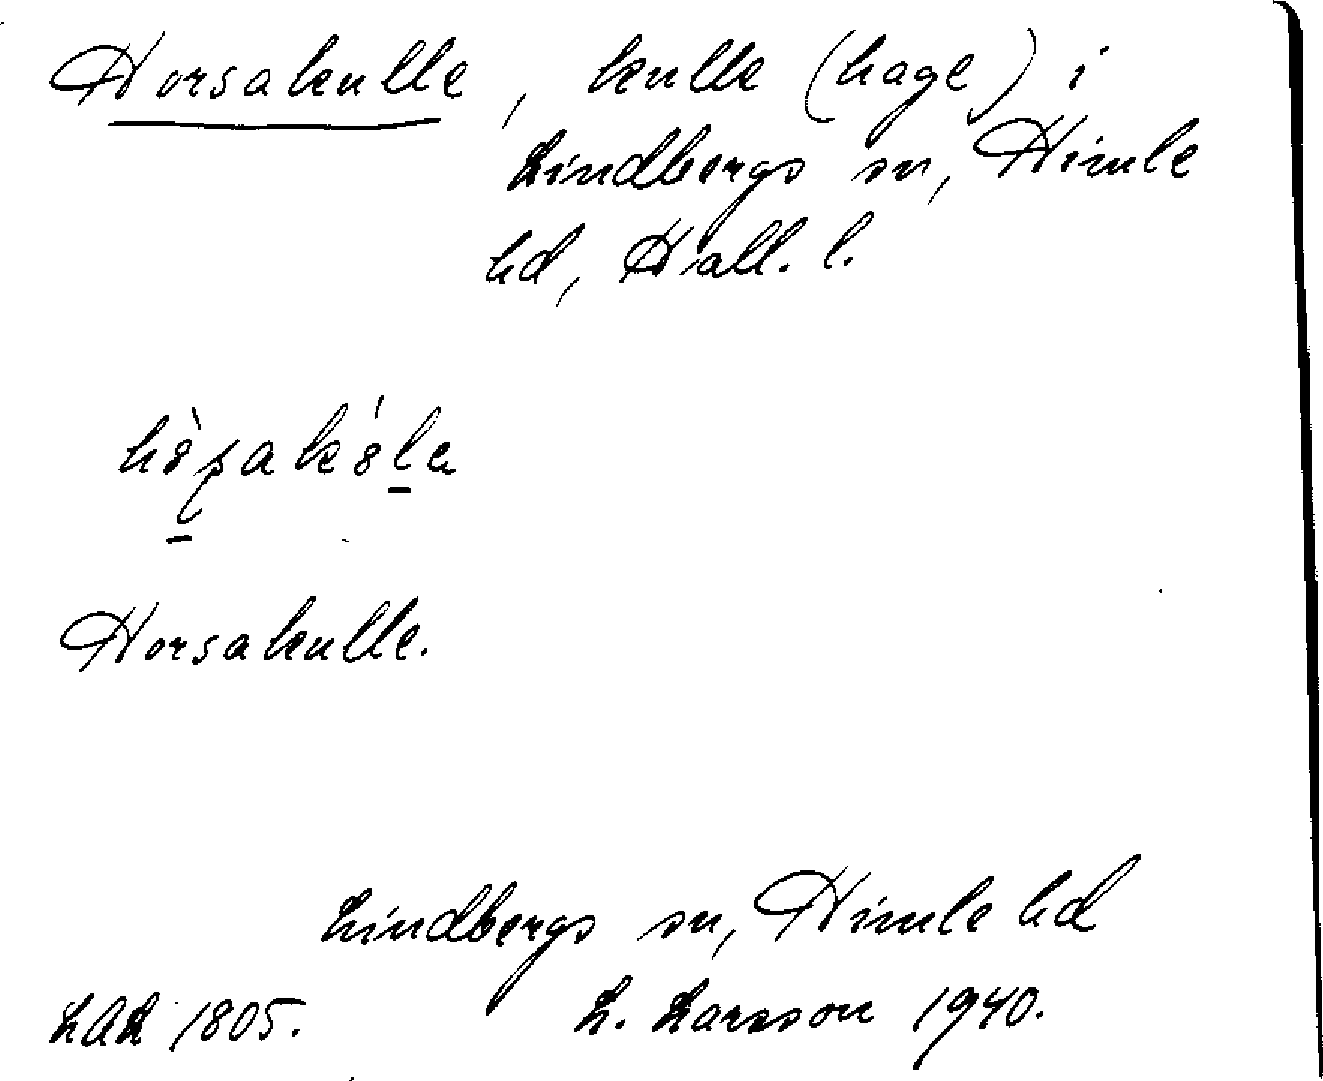 Horsakulle, kulle (hage) i
Lindbergs sn, Himle
hd, Hall. l.
Horsakulle.
Lindbergs sn, Himle hd
LAL 1805. L. Larsson 1940.